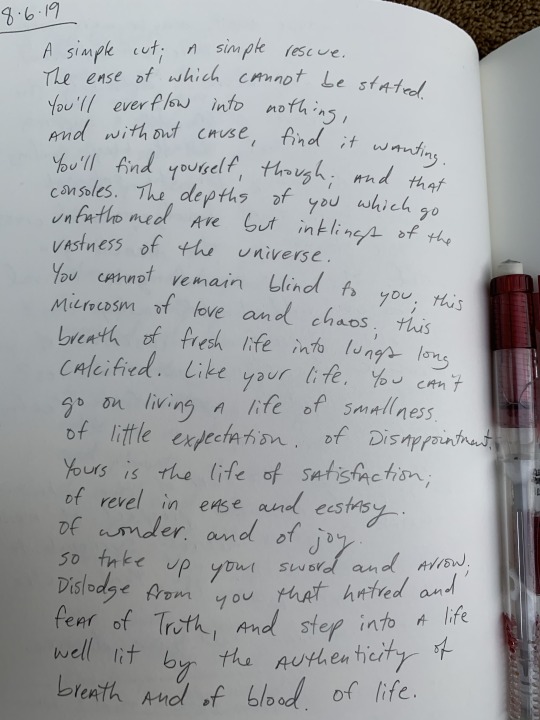 8.6.19
A simple cut; a simple rescue.
The ease of which cannot be stated.
You'll everflow into nothing,
and without cause, find it wanting.
You'll find yourself, though; and that
consoles. The depths of you which go
unfathomed are but inklings of the
vastness of the universe.
You cannot remain blind to you; this
microcosm of love and chaos; this
breath of fresh life into lungs long
calcified. Like your life. You can't
go on living a life of smallness.
of little expectation. of disappointment.
Yours is the life of satisfaction;
of revel in ease and ecstasy.
of wonder. and of joy.
so take up your sword and arrow;
Dislodge from you that hatred and
fear of Truth, and step into a life
well lit by the authenticity of
breath and of blood. of life.